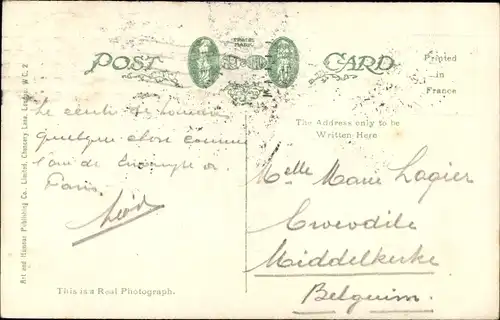 POST CARD
TRADE MARK
Printed
in
France
The Address only to be
Written Here
Le centre de Londres
quelque chose comme
l'arc de triomphe de
Paris
Léod
Melle Marie Lagier
Crocodile
Middelkerke
Belguim.
This is a Real Photograph.
Art and Humour Publishing Co., Limited, Chancery Lane, London, W.C. 2